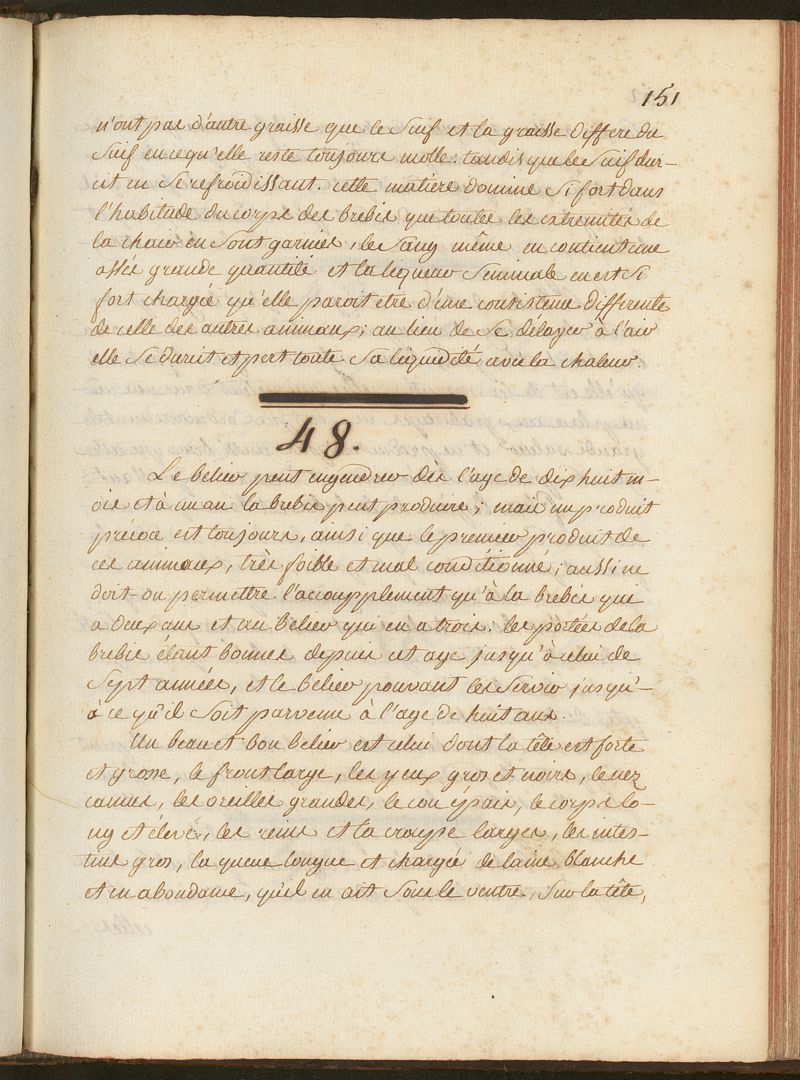 151
n'ont pas d'autre graisse que le Suif et la graisse differe du
Suif en ce qu'elle reste toujours molle: tandis que le Suif dur-
cit en Se refroidissant. cette matiere domine Si fort dans
l'habitude du corps des brebis que toutes les extremites de
la chair en Sont garnies, le Sang même en contient une
assés grande quantité et la liqueur Seminale en est Si
fort chargée qu'elle paroit etre d'une consistence differente
de celle des autres animaux; au lieu de Se délayer à l'air
elle Se durcit et pert toute Sa liquidité avec la chaleur.
48.
Le belier peut engendrer dès l'age de dix huit m-
ois et à un an la brebis peut produire; mais un produit
précoce est toujours, ainsi que le premier produit de
ces animaux, très foible et mal conditionné; aussi ne
doit-on permettre l'accouplement qu'à la brebis qui
a deux ans et au belier qui en a trois: les portées de la
brebis étant bonnes depuis cet age jusqu'à celui de
Sept années, et le bélier pouvant les Servir jusqu'-
à ce qu'il Soit parvenu à l'age de huit ans.
Un beau et bon belier est celui dont la tête est forte
et grosse, le front large, les yeux gros et noirs, le nez
camus, les oreilles grandes, le cou épais, le corps lo-
ng et élevé, les reins et la croupe larges, les intes-
tins gros, la queue longue et chargée de laine blanche
et en abondance, qu'il en ait Sous le ventre, Sur la tête,